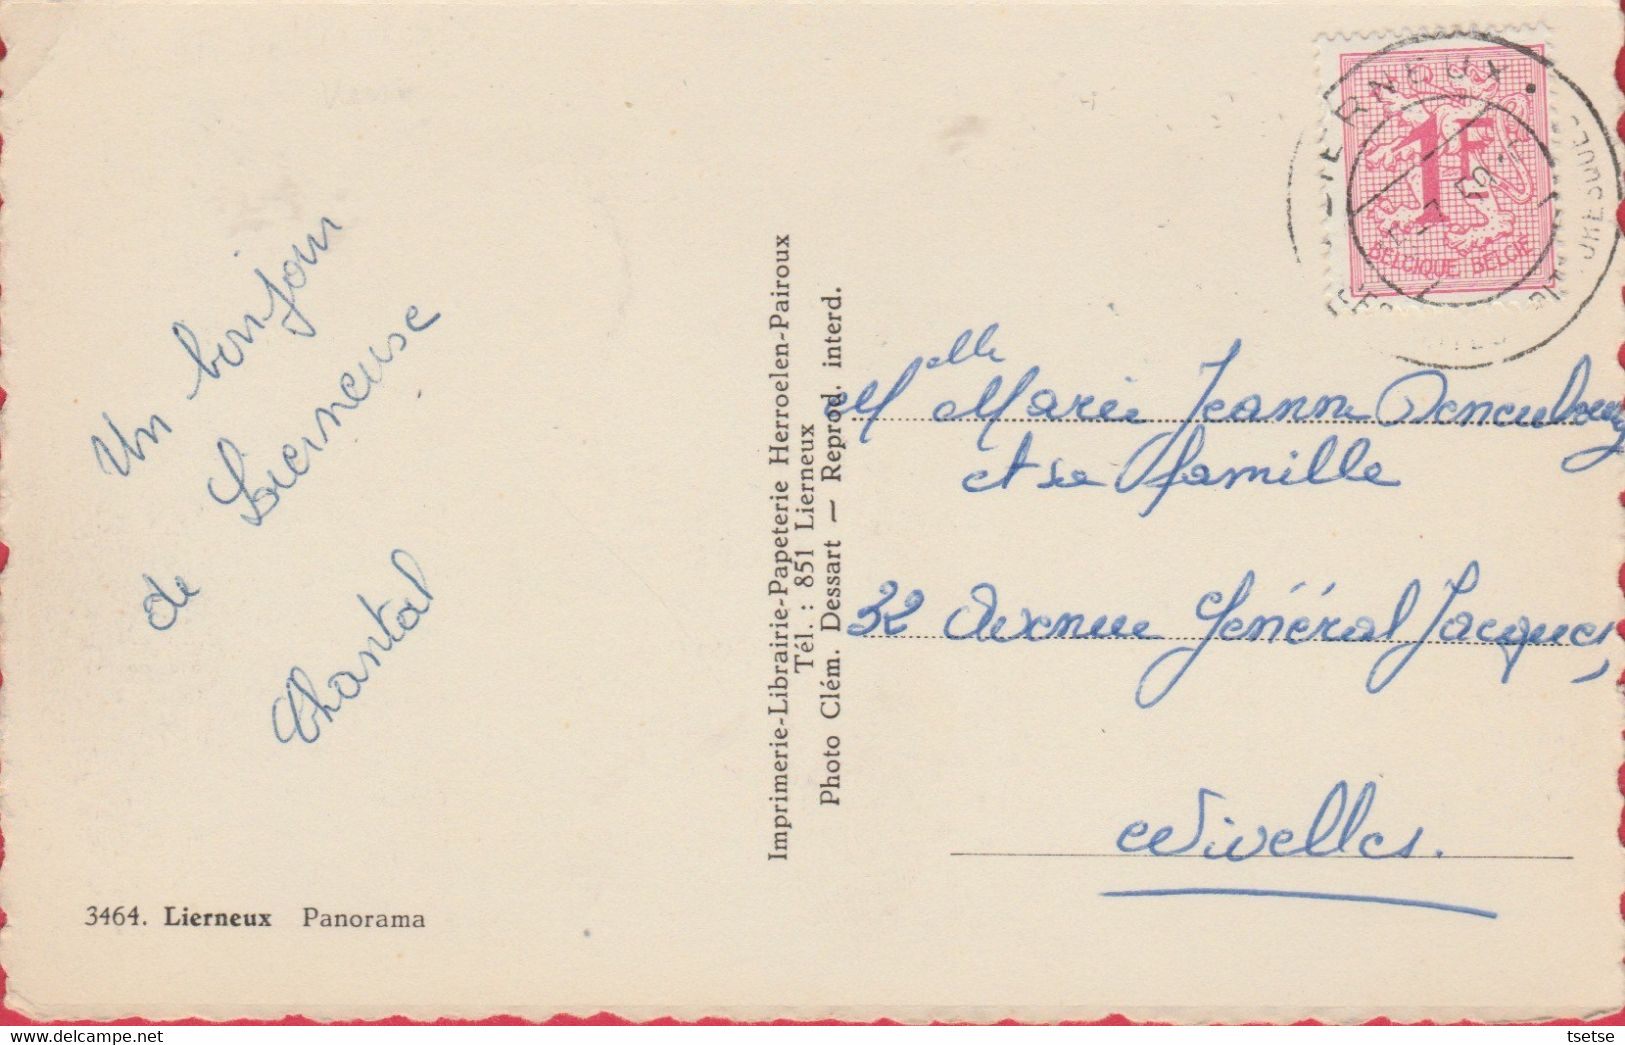 LIERNEUX
1F
BELGIQUE BELGIE
Un bonjour
de Lierneuse
Chantal
Imprimerie-Librairie-Papeterie Herroelen-Pairoux
Tél. : 851 Lierneux
Photo Clém. Dessart — Reprod. interd.
Melle Marie Jeanne Deneubourg
et sa famille
32 Avenue Général Jacques,
Nivelles.
3464. Lierneux Panorama
tsetse